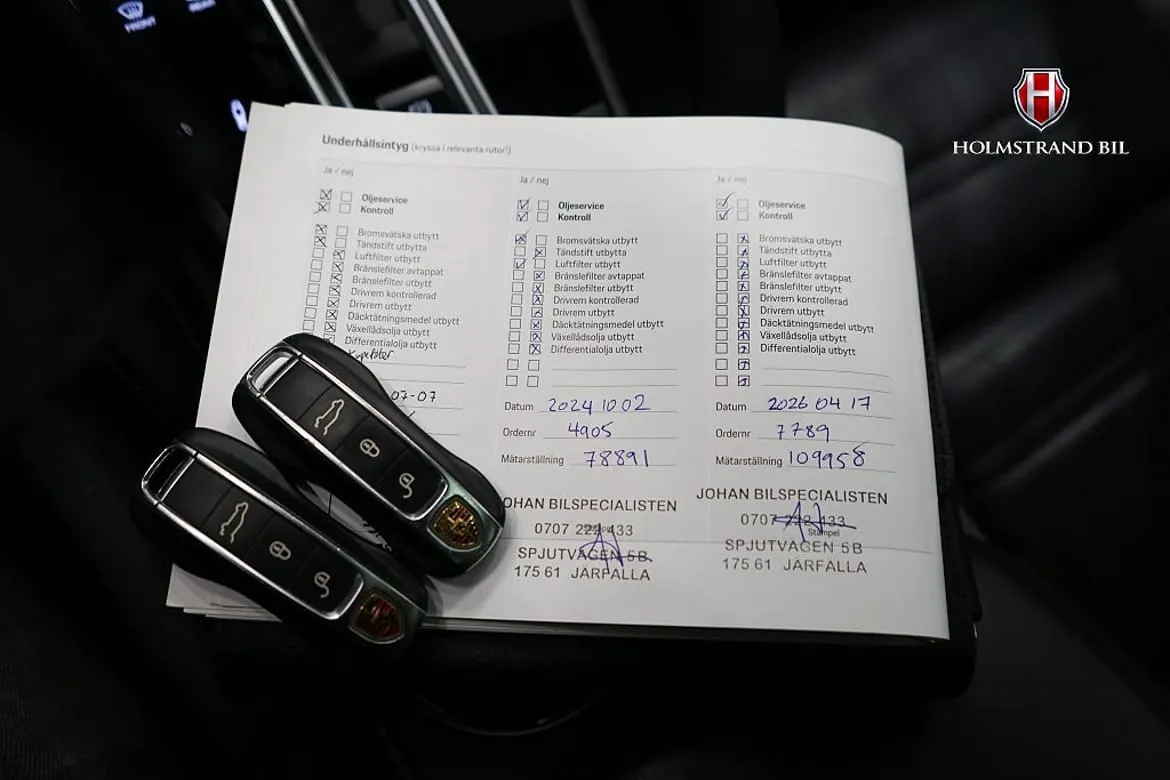 FRONT
REAR
H
HOLMSTRAND BIL
Underhållsintyg (kryssa i relevanta rutor!)
Ja / nej
Oljeservice
Kontroll
Bromsvätska utbytt
Tändstift utbytta
Luftfilter utbytt
Bränslefilter avtappat
Bränslefilter utbytt
Drivrem kontrollerad
Drivrem utbytt
Däcktätningsmedel utbytt
Växellådsolja utbytt
Differentialolja utbytt
07-07
Ja / nej
Oljeservice
Kontroll
Bromsvätska utbytt
Tändstift utbytta
Luftfilter utbytt
Bränslefilter avtappat
Bränslefilter utbytt
Drivrem kontrollerad
Drivrem utbytt
Däcktätningsmedel utbytt
Växellådsolja utbytt
Differentialolja utbytt
Datum 2024 10 02
Ordernr 4905
Mätarställning 78891
JOHAN BILSPECIALISTEN
0707 222 433
SPJUTVÄGEN 5B
175 61 JÄRFÄLLA
Ja / nej
Oljeservice
Kontroll
Bromsvätska utbytt
Tändstift utbytta
Luftfilter utbytt
Bränslefilter avtappat
Bränslefilter utbytt
Drivrem kontrollerad
Drivrem utbytt
Däcktätningsmedel utbytt
Växellådsolja utbytt
Differentialolja utbytt
Datum 2026 04 17
Ordernr 7789
Mätarställning 109958
JOHAN BILSPECIALISTEN
0707 222 433
Stämpel
SPJUTVÄGEN 5B
175 61 JÄRFÄLLA